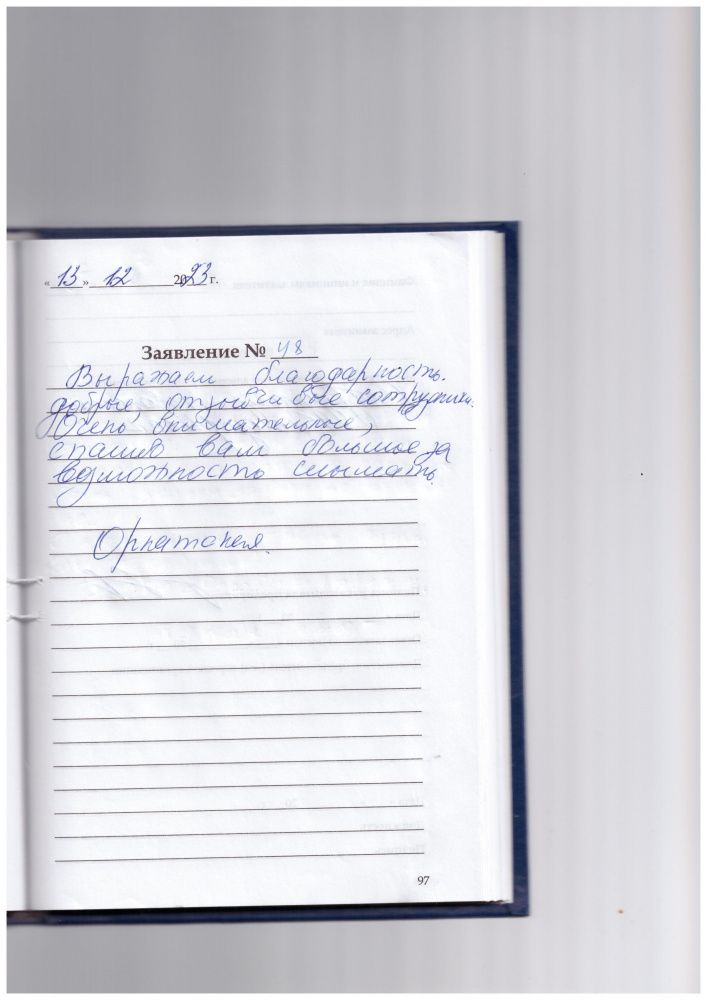 «13» 12 2023 г.
Заявление № 48
Выражаем благодарность.
добрые, отзывчивые сотрудники.
Очень внимательные,
спасибо вам большое за
возможность слышать.
97